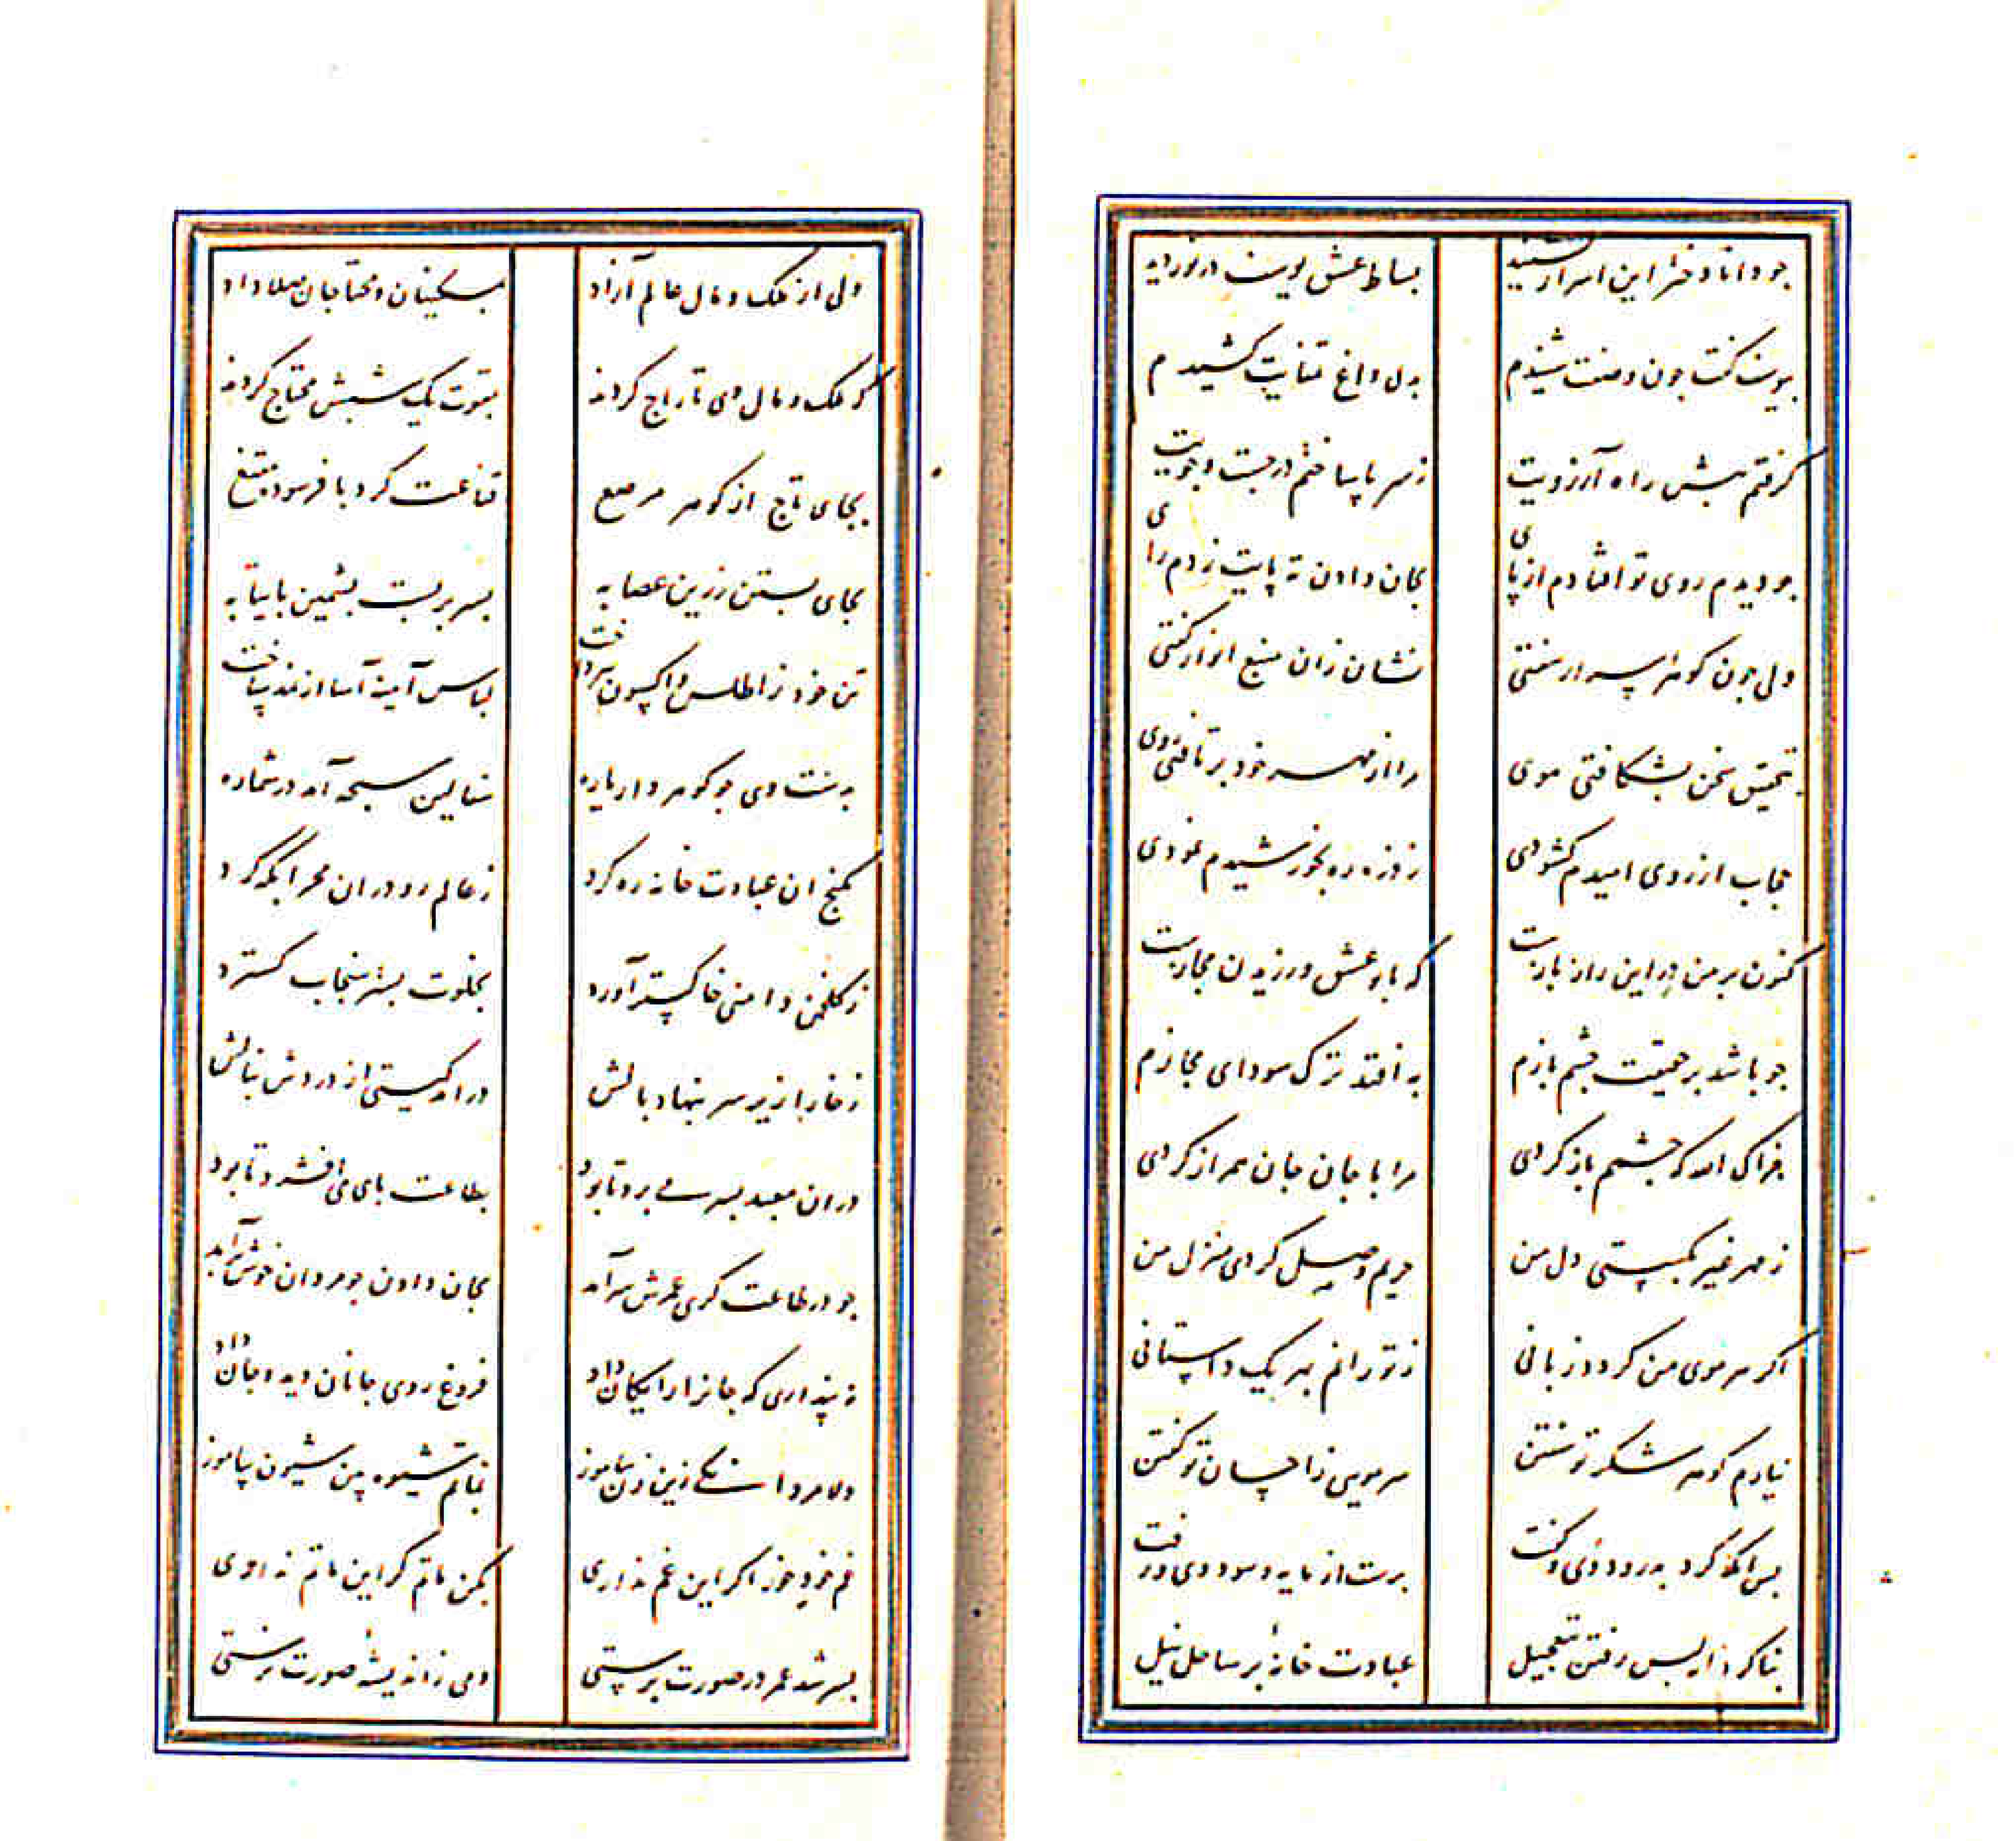 چو دانا دختر این اسرار بشنید بساط عشق یوسف در نوردید
بیوسف گفت چون وصفت شنیدم بدل داغ تمنایت کشیدم
گرفتم پیش راه آرزویت ز سر پا ساختم در جست و جویت
چو دیدم روی تو افتادم از پای بجان دادن ته پایت زدم رای
ولی چون گوهر اسرار سفتی نشان زان منبع انوار گفتی
بتحقیق سخن بشکافتی موی مرا از مهر خود برتافتی روی
حجاب از روی امیدم گشودی ز ذره ره بخورشیدم نمودی
کنون بر من در این راز بازست که با تو عشق ورزیدن مجازست
چو باشد بر حقیقت چشم بازم به افتد ترک سودای مجازم
جزاک الله که چشمم باز کردی مرا با جان جان همراز کردی
ز مهر غیر بگسستی دل من حریم وصل کردی منزل من
اگر هر موی من گردد زبانی ز تو رانم بهر یک داستانی
نیارم گوهر شکر تو سفتن سر مویی ز احسان تو گفتن
پس آنگه کرد بدرود وی و رفت برست از مایه و سود وی و رفت
بنا کرد از پس رفتن بتعجیل عبادت خانهٔ بر ساحل نیل
دلی از ملک و مال عالم آزاد بمسکینان و محتاجان صلا داد
که ملک و مال وی تاراج کردند بقوت یک شبش محتاج کردند
بجای تاج از گوهر مرصع قناعت کرد با فرسوده مقنع
بجای بستن زرین عصابه بسر بر بست پشمین پایتابه
تن خود ز اطلس و اکسون بپرداخت لباس آینه آسا از نمد ساخت
بدست وی چو گوهردار یاره سفالین سبحه آمد در شماره
بکنج آن عبادت خانه ره کرد ز عالم رو در آن محرابگه کرد
ز گلخن دامنی خاکستر آورد بخلوت بستر سنجاب گسترد
ز خارا زیر سر بنهاد بالش درآمد گیتی از دردش بنالش
در آن معبد بسر می برد تا بود بطاعت پای می افشرد تا بود
چو در طاعت گری عمرش سرآمد بجان دادن چو مردان خوش برآمد
نه پنداری که جانرا رایگان داد فروغ روی جانان دید و جان داد
دلا مردانگی زین زن بیاموز بماتم شیوه این شیون بیاموز
غم خود خور اگر این غم نداری بکن ماتم گر این ماتم نداری
بسر شد عمر در صورت پرستی دمی ز اندیشهٔ صورت نرستی